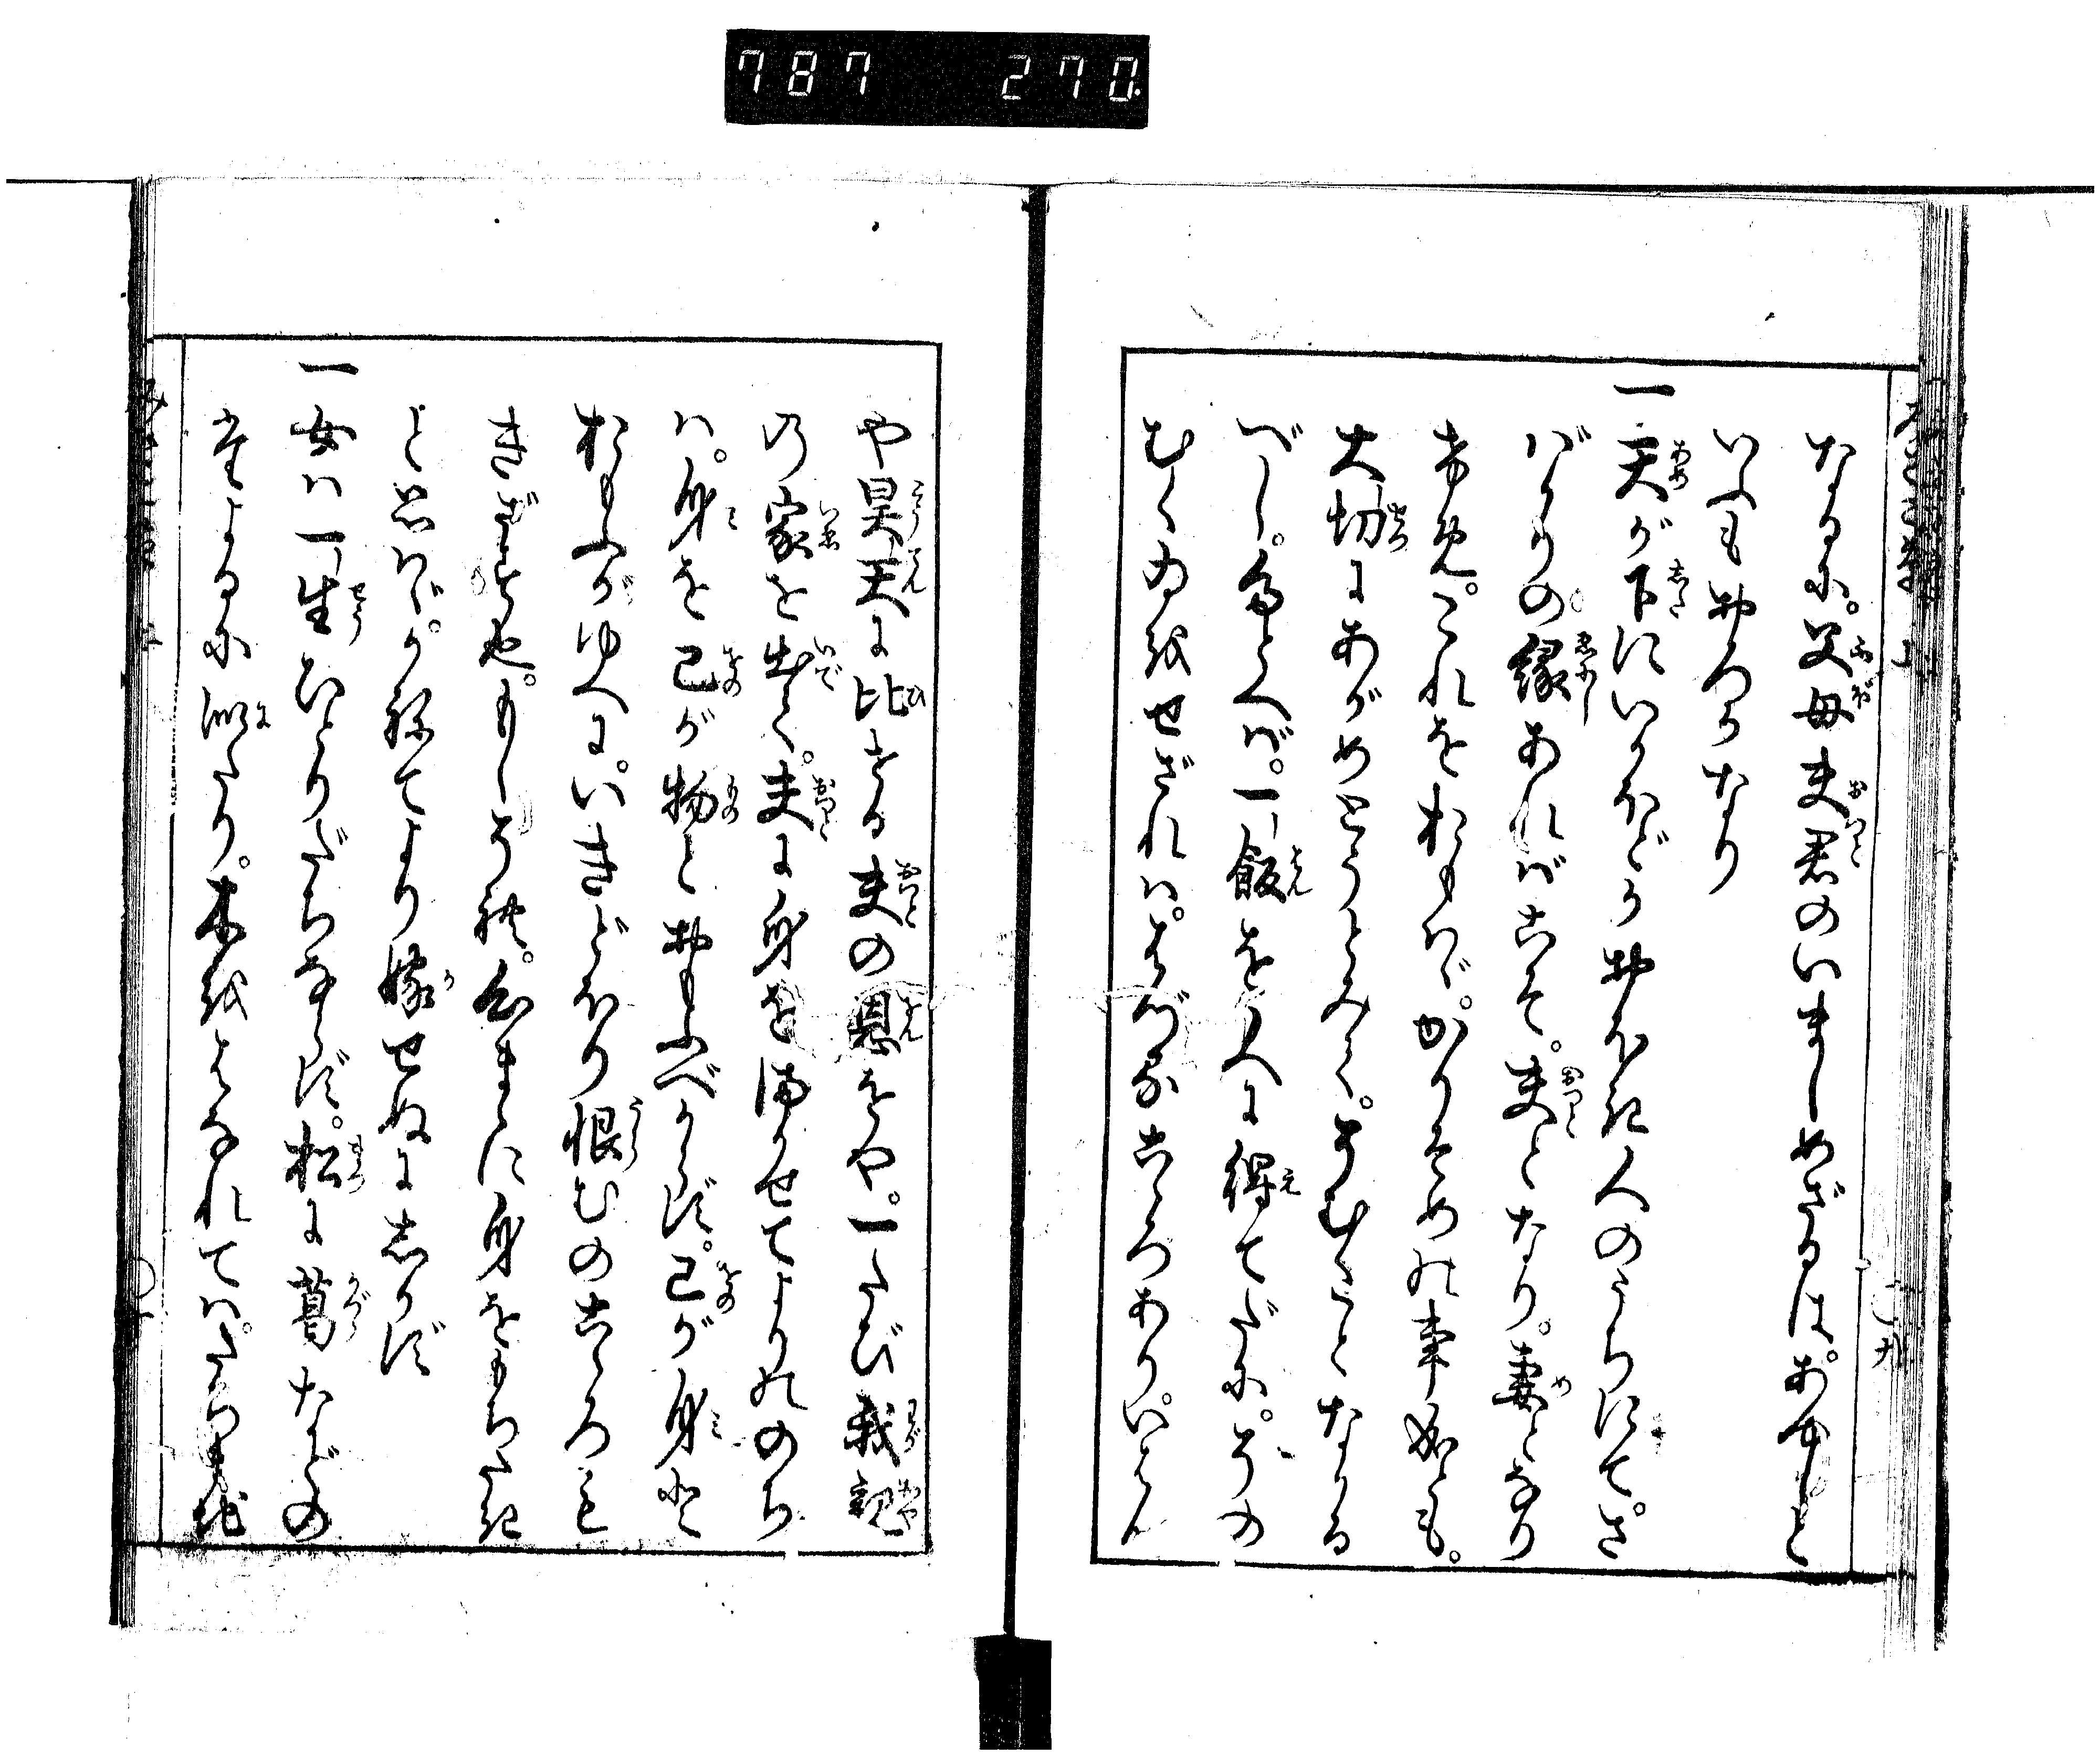 787 270
なるに。父母夫君のいましめざるは。あやしと
いふもおろかなり
一天が下にいかほどかおほき人のうちにて。さ
ばかりの縁あればこそ。夫となり。妻となり
けめ。これをおもはゞ。かりそめの事成とも。
大切にあがめとうとみて。そむくことなかる
べし。たとへば。一飯を人に得てだに。その
むくゐをせざれは。はづるこゝろあり。いはん
や昊天に比する夫の恩をや。一たび我親
の家を出て。夫に身をまかせてよりのち
は。身を己が物とおもふべからず。己が身と
おもふがゆへに。いきどほり恨むのこゝろも
きざす也。もしそれ。心まゝに身をもちたき
と思はゞ。かねてより嫁せぬにしかず
一女は一生ひとりだちならず。松に葛などの
たよるに似たり。木をはなれては。たちも